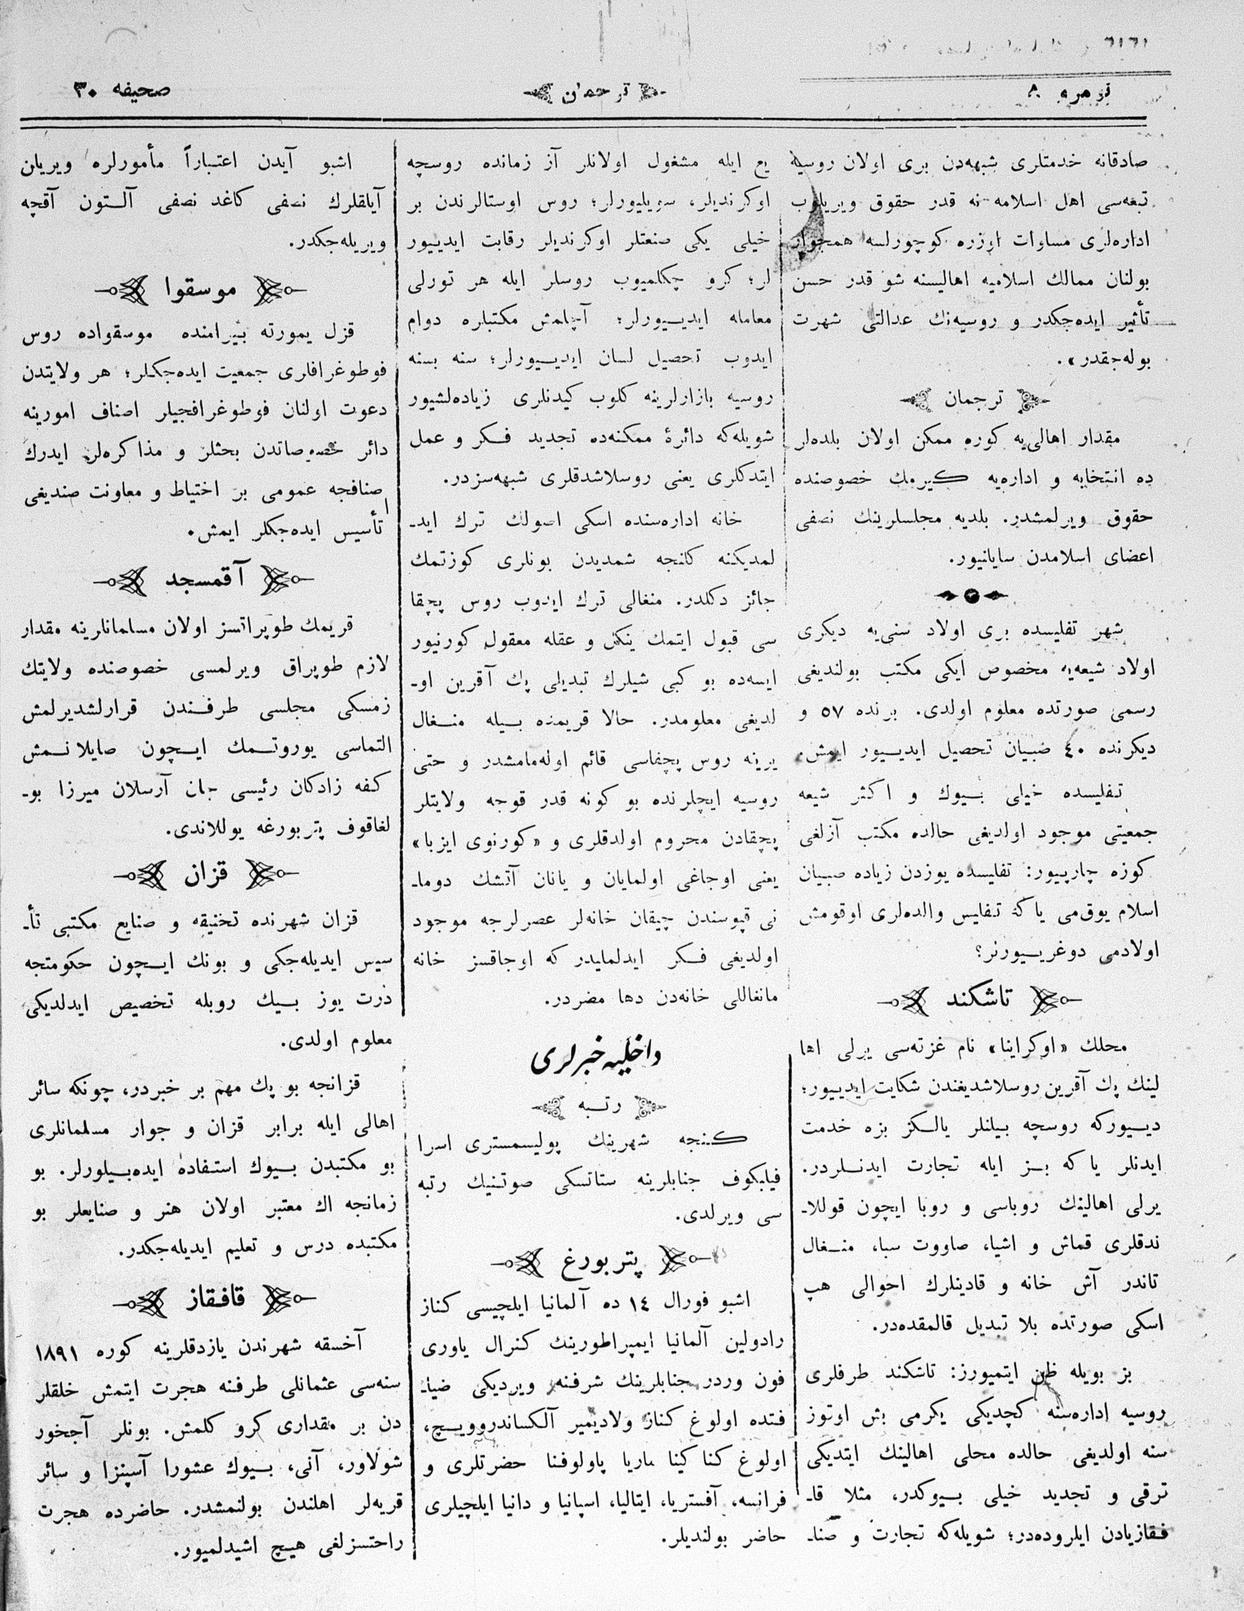 نومرو ٨
ترجمان
صحيفه ٣٠
صادقانه خدمتلری شبهه‌دن بری اولان روسيه
تبعه‌سی اهل اسلامه نه قدر حقوق ويريلوب
اداره‌لری مساوات اوزره كوچورلسه همجوار
بولنان ممالك اسلاميه اهاليسنه شو قدر حسن
تأثير ايده‌جكدر و روسيه‌نك عدالتی شهرت
بوله‌جقدر».
ترجمان
مقدار اهالی‌يه كوره ممكن اولان بلده‌لر
ده انتخابه و اداره‌يه كيرمك خصوصنده
حقوق ويرلمشدر. بلديه مجلسلرينك نصفی
اعضای اسلامدن سايلانيور.
شهر تفليسده بری اولاد سنی‌يه ديكری
اولاد شيعه‌يه مخصوص ايكی مكتب بولنديغی
رسمی صورتده معلوم اولدی. برنده ٥٧ و
ديكرنده ٤٠ صبيان تحصيل ايديیور ايمش.
تفليسده خيلی بيوك و اكثر شيعه
جمعيتی موجود اولديغی حالده مكتب آزلغی
كوزه چارپيور: تفليسده يوزدن زياده صبيان
اسلام يوق‌می يا كه تفليس والده‌لری اوقومش
اولادمی دوغريیورنر؟
تاشكند
محلك «اوكراينا» نام غزته‌سی يرلی اها
لينك پك آقرين روسلاشديغندن شكايت ايدييور؛
دييوركه روسچه بيلنلر يالكز بزه خدمت
ايدنلر يا كه بز ايله تجارت ايدنلردر.
يرلی اهالينك روباسی و روبا ايچون قوللا۔
ندقلری قماش و اشيا، صاووت سبا، منغال
تاندر آش خانه و قادينلرك احوالی هپ
اسكی صورتده بلا تبديل قالمقده‌در.
بز بويله ظن ايتميورز: تاشكند طرفلری
روسيه اداره‌سنه كچديكی يكرمی بش اوتوز
سنه اولديغی حالده محلی اهالينك ايتديكی
ترقی و تجديد خيلی بيوكدر، مثلا قا۔
فقازيادن ايلروده‌در؛ شويله‌كه تجارت و صنا۔
يع ايله مشغول اولانلر آز زمانده روسچه
اوكرنديلر، سويليورلر؛ روس اوستالرندن بر
خيلی يكی صنعتلر اوكرنديلر رقابت ايدييور
لر؛ كرو چكلميوب روسلر ايله هر تورلی
معامله ايديیورلر؛ آچلمش مكتبلره دوام
ايدوب تحصيل لسان ايديیورلر؛ سنه بسنه
روسيه بازارلرينه كلوب كيدنلری زياده‌لشيور
شويله‌كه دائرۀ ممكنه‌ده تجديد فكر و عمل
ايتدكلری يعنی روسلاشدقلری شبهه‌سزدر.
خانه اداره‌سنده اسكی اصولك ترك ايد۔
لمديكنه كلنجه شمديدن بونلری كوزتمك
جائز دكلدر. منغالی ترك ايدوب روس پچقا
سی قبول ايتمك ينكل و عقله معقول كورنيور
ايسه‌ده بو كبی شيلرك تبديلی پك آقرين او۔
لديغی معلومدر. حالا قريمده بيله منغال
يرينه روس پچقاسی قائم اوله‌مامشدر و حتی
روسيه ايچلرنده بو كونه قدر قوجه ولايتلر
پچقادن محروم اولدقلری و «كورنوی ايزبا»
يعنی اوجاغی اولمايان و يانان آتشك دوما۔
نی قپوسندن چيقان خانه‌لر عصرلرجه موجود
اولديغی فكر ايدلمايدر كه اوجاقسز خانه
مانغاللی خانه‌دن دها مضردر.
داخليه خبرلری
رتبه
كنجه شهرينك پوليسمستری اسرا
فيلبكوف جنابلرينه ستاتسكی صوتنيك رتبه
سی ويرلدی.
پتربورغ
اشبو فورال ١٤ ده آلمانيا ايلچيسی كناز
رادولين آلمانيا ايمپراطورينك كنرال ياوری
فون وردر جنابلرينك شرفنه ويرديكی ضيا۔
فتده اولوغ كناز ولاديمير آلكساندروويچ،
اولوغ كناكينا ماريا پاولوفنا حضرتلری و
فرانسه، آفستريا، ايتاليا، اسپانيا و دانيا ايلچيلری
حاضر بولنديلر.
اشبو آيدن اعتباراً مأمورلره ويريلن
آيلقلرك نصفی كاغد نصفی آلتون آقچه
ويريله‌جكدر.
موسقوا
قزل يمورته بيرامنده موسقواده روس
فوطوغرافلری جمعيت ايده‌جكلر؛ هر ولايتدن
دعوت اولنان فوطوغرافجيلر اصناف امورينه
دائر خصوصاتدن بحثلر و مذاكره‌لر ايدرك
اصنافجه عمومی بر اختياط و معاونت صنديغی
تأسيس ايده‌جكلر ايمش.
آقمسجد
قريمك طوپراتسز اولان مسلمانلرينه مقدار
لازم طوپراق ويرلمسی خصوصنده ولايتك
زمسكی مجلسی طرفندن قرارلشديرلمش
التماسی يوروتمك ايچون صايلانمش
كفه زادكان رئيسی جان آرسلان ميرزا بو۔
لغاقوف پتربورغه يوللاندی.
قزان
قزان شهرنده تخنيقه و صنايع مكتبی تأ۔
سيس ايديله‌جكی و بونك ايچون حكومتجه
درت يوز بيك روبله تخصيص ايدلديكی
معلوم اولدی.
قزانجه بو پك مهم بر خبردر، چونكه سائر
اهالی ايله برابر قزان و جوار مسلمانلری
بو مكتبدن بيوك استفاده ايده‌بيلورلر. بو
زمانجه اك معتبر اولان هنر و صنايعلر بو
مكتبده درس و تعليم ايديله‌جكدر.
قافقاز
آخسقه شهرندن يازدقلرينه كوره ١٨٩١
سنه‌سی عثمانلی طرفنه هجرت ايتمش خلقلر
دن بر مقداری كرو كلمش. بونلر آجخور
شولاور، آنی، بيوك عشورا آسپنزا و سائر
قريه‌لر اهلندن بولنمشدر. حاضرده هجرت
راحتسزلغی هيچ اشيدلميور.